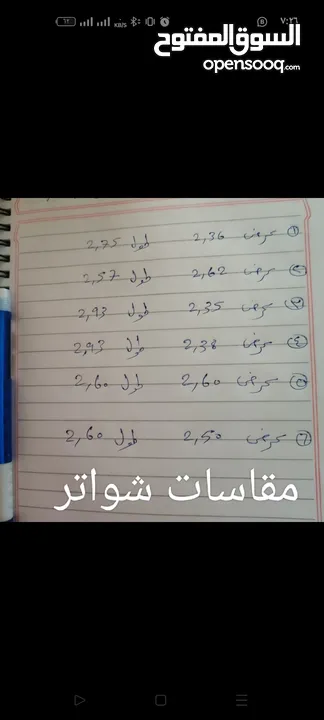 ٧:٢٦
KB/S
السوق المفتوح
opensooq.com
① عرض 2,36 طول 2,75
② عرض 2,62 طول 2,57
③ عرض 2,35 طول 2,93
④ عرض 2,38 طول 2,93
⑤ عرض 2,60 طول 2,60
⑥ عرض 2,50 طول 2,60
مقاسات شواتر